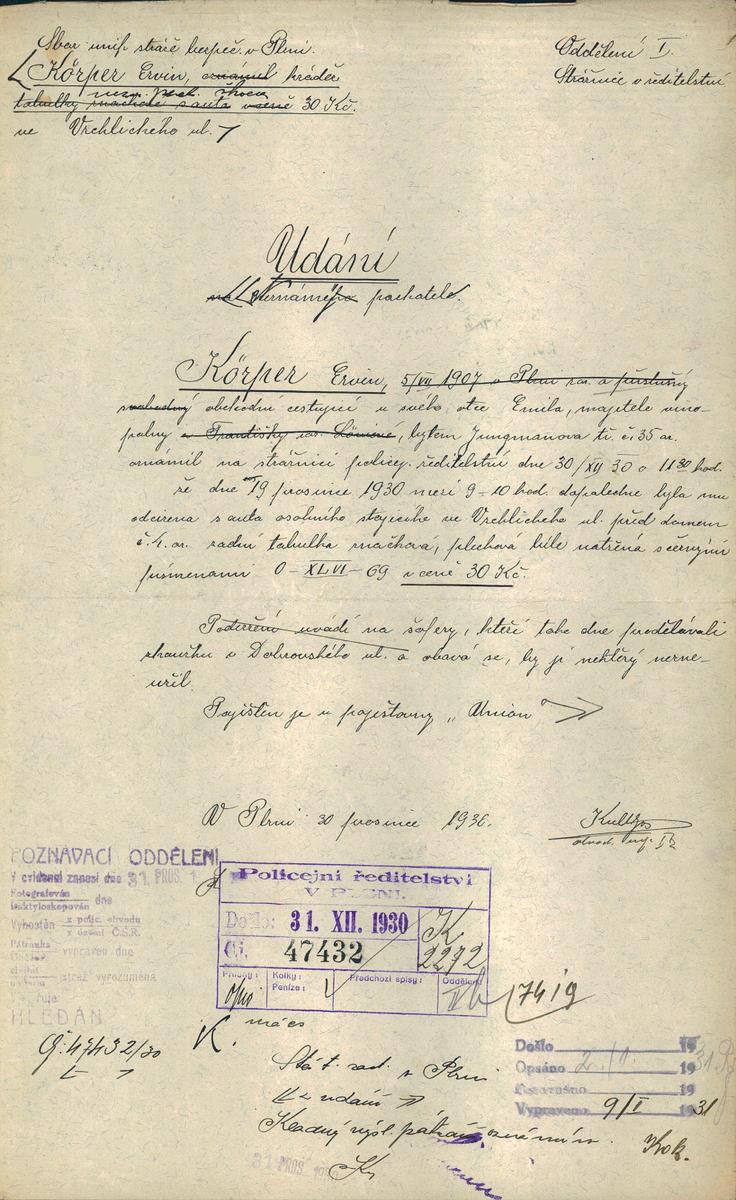 Sbor unif. stráže bezpeč. v Plzni.
Oddělení I.
Körper Ervín, oznámil krádež
Strážnice v ředitelství
nezn. pach. škoda
tabulky značkové s auta v ceně 30 Kč.
ve Vrchlického ul.
Udání
na neznámého pachatele.
Körper Ervín, 5/VII 1907 v Plzni nar. a příslušný
svobodný obchodní cestující u svého otce Emila, majitele vino-
palny a Františky roz. , bytem Jungmanova tř. č. 35 
oznámil na strážnici policej. ředitelství dne 30/XII 30 o 11 30 hod.
že dne 19 prosince 1930 mezi 9-10 hod. dopoledne byla mu
odcizena s auta osobního stojícího ve Vrchlického ul. před domem
č. 4. or. zadní tabulka značková, plechová bíle natřená s černými
písmenami O-XLVI-69 v ceně 30 Kč.
Podezření uvádí na šofery, kteří toho dne prodělávali
zkoušku v Dobrovského ul. a obává se, by jí některý nezne-
užil.
Pojištěn je u pojišťovny „Union"
V Plzni 30 prosince 1930.
POZNÁVACÍ ODDĚLENÍ
V evidenci zanesl dne 31. PROS. 1
Fotografován
Daktyloskopován dne
Vyhoštěn z polic. obvodu
z území Č.S.R.
Pátránka
vypraven dne
stráž vyrozuměna
HLEDÁN
Policejní ředitelství
V PLZNI.
Došlo: 31. XII. 1930
Čj. 47432
K
2272
Přílohy:
Kolky:
Peníze:
Předchozí spisy:
Oddělení
IIb
74/9
Čj: 47432/30
K.
Stát. zast. v Plzni
udání
Kladný výsl. pátrání oznámím.
31 PROS. 19
Došlo 2/1. 1931
Opsáno 19
19
Vypraveno 9/I 1931
Kok.